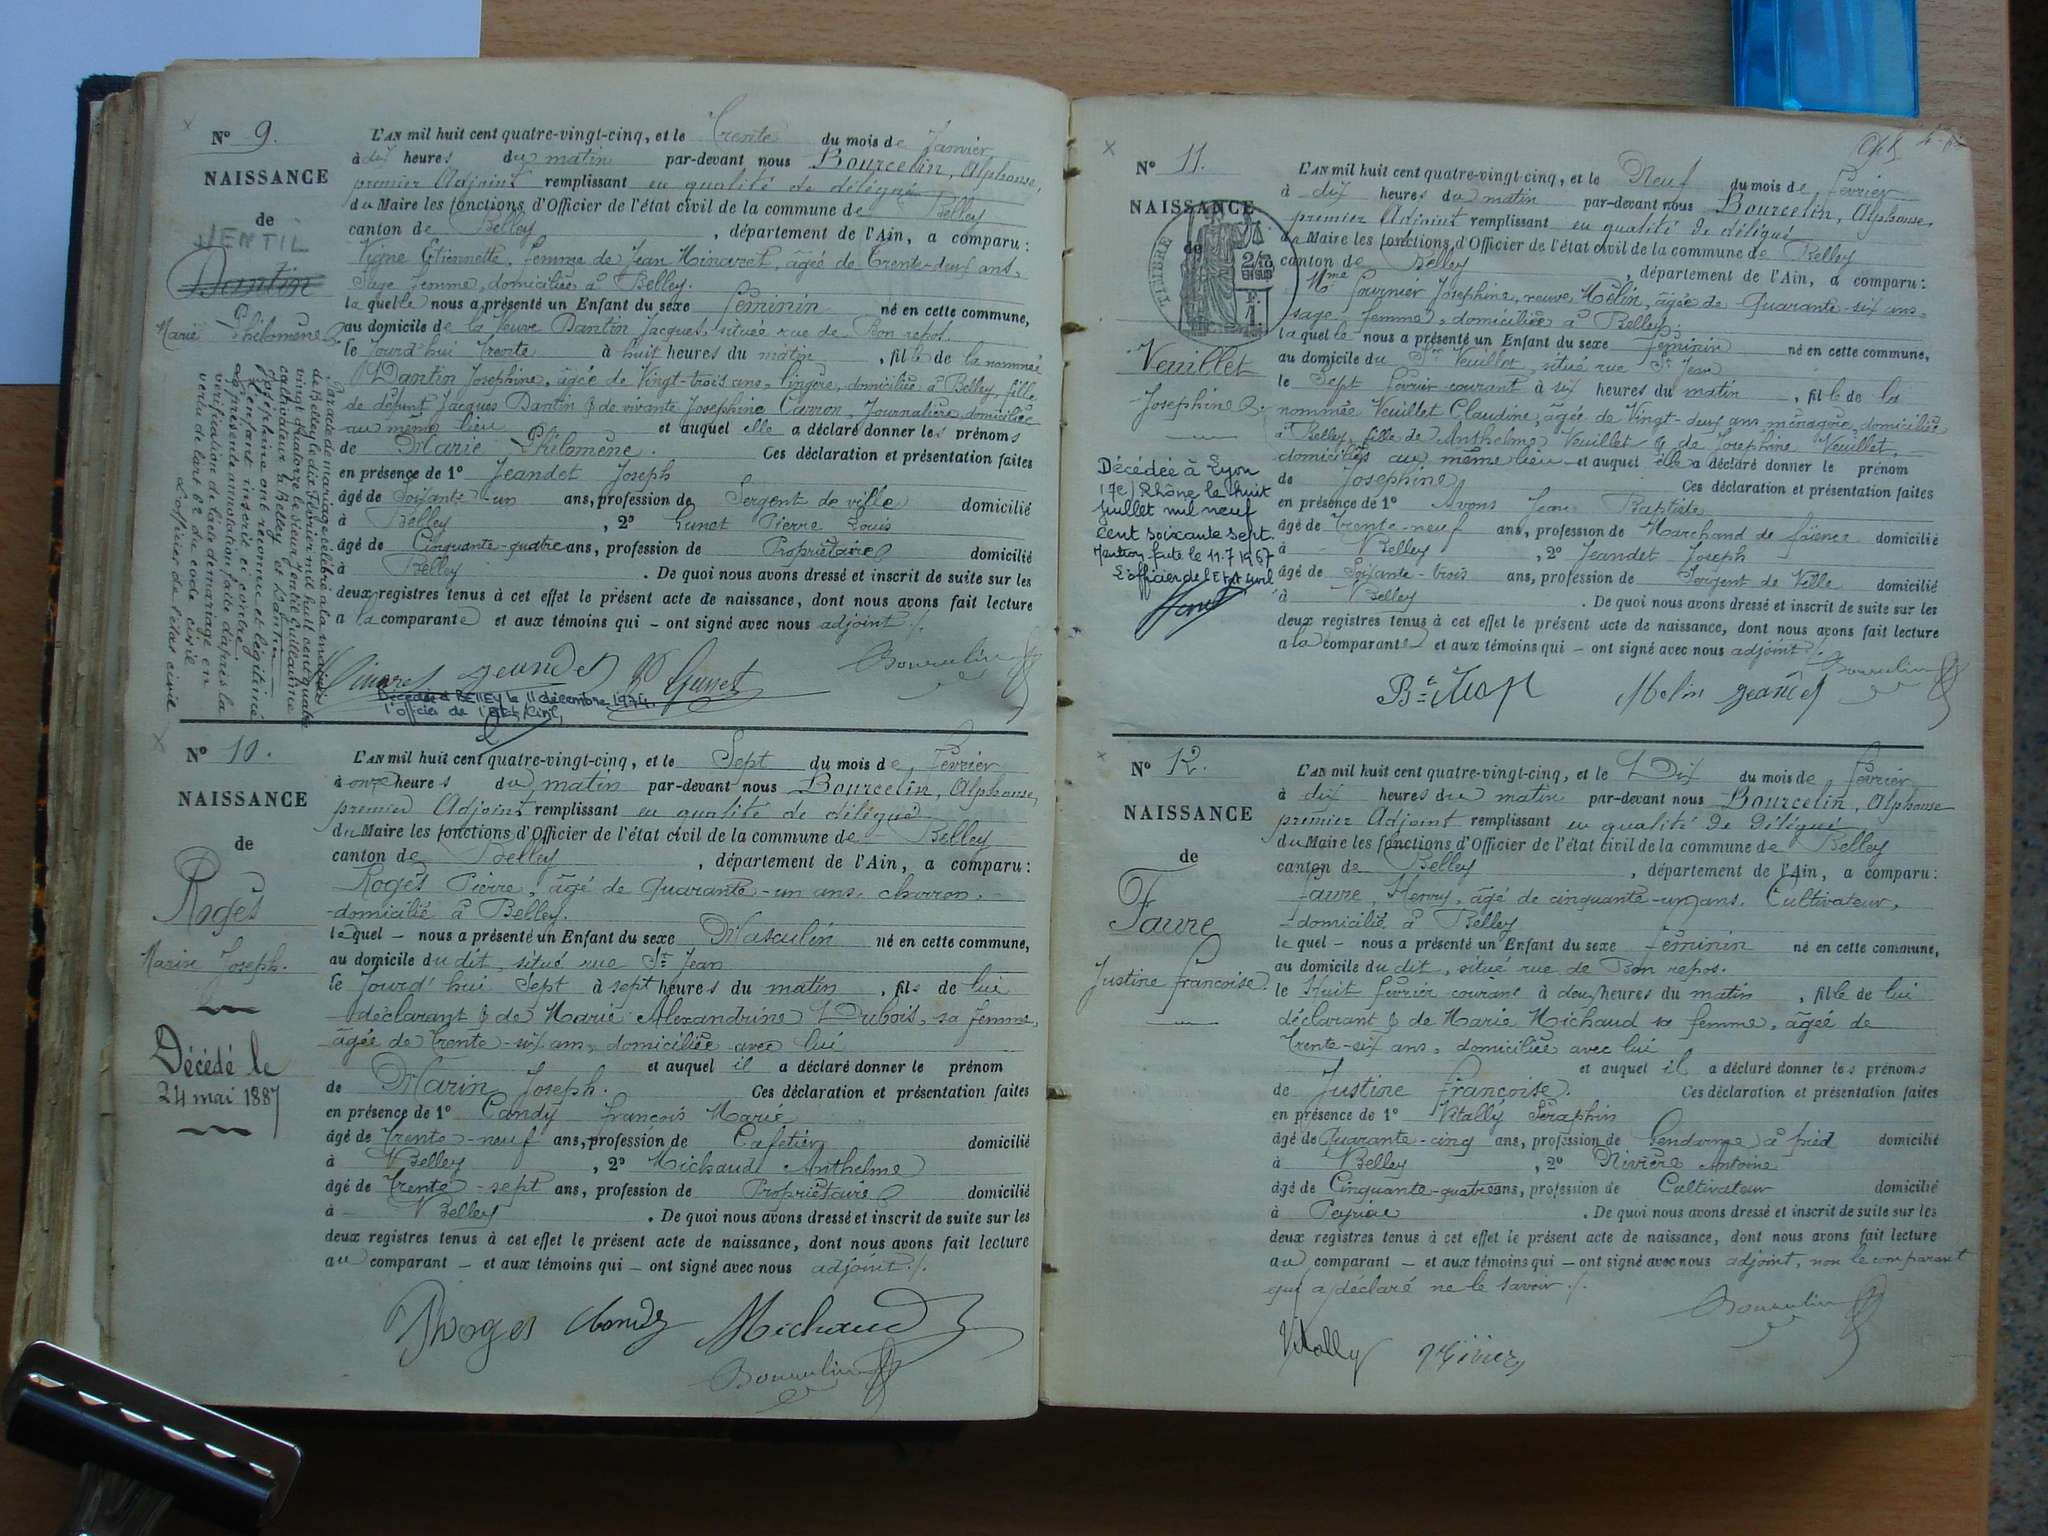 N° 9.
NAISSANCE
de
JENTIL
Dantin
Marie Philomène
L'AN mil huit cent quatre-vingt-cinq, et le Trente du mois de Janvier
à dix heures du matin par-devant nous Bourcelin, Alphonse,
premier Adjoint remplissant en qualité de délégué
du Maire les fonctions d'Officier de l'état civil de la commune de Belley
canton de Belley, département de l'Ain, a comparu:
Vigne Etiennette, femme de Jean Minaret, âgée de trente-deux ans,
Sage femme, domiciliée à Belley.
laquelle nous a présenté un Enfant du sexe féminin né en cette commune,
au domicile de la Veuve Dantin Jacques, située rue de Bon repos
le Jourd'hui trente à huit heures du matin, fille de la nommée
Dantin Josephine, âgée de Vingt-trois ans, lingère, domiciliée à Belley, fille
de défunt Jacques Dantin & de vivante Josephine Carron, Journalière, domiciliée
au même lieu et auquel elle a déclaré donner les prénoms
de Marie Philomène. Ces déclaration et présentation faites
en présence de 1° Jeandet Joseph
âgé de Soixante un ans, profession de Sergent de ville domicilié
à Belley, 2° Lunet Pierre Louis
âgé de Cinquante-quatre ans, profession de Propriétaire domicilié
à Belley. De quoi nous avons dressé et inscrit de suite sur les
deux registres tenus à cet effet le présent acte de naissance, dont nous avons fait lecture
a la comparante et aux témoins qui - ont signé avec nous adjoint ./.
Par acte de mariage célébré à la mairie
de Belley le dix Février mil huit cent quatre
vingt quatorze le sieur Jentil Guillaume
cultivateur à Belley et Dantin
Joséphine ont reconnu et légitimé
l'enfant inscrit ci-contre
La présente annotation faite d'après la
vérification de l'acte de mariage en
vertu de l'art 62 du code civil
L'officier de l'état civil
Minaret Jeandet Bourcelin
Décédée à BELLEY le 11 décembre 1974.
L'officier de l'Etat Civil,
N° 10.
NAISSANCE
de
Rogès
Marin Joseph.
Décédé le
24 mai 1887
L'AN mil huit cent quatre-vingt-cinq, et le Sept du mois de Février
à onze heures du matin par-devant nous Bourcelin, Alphonse,
premier Adjoint remplissant en qualité de délégué
du Maire les fonctions d'Officier de l'état civil de la commune de Belley
canton de Belley, département de l'Ain, a comparu:
Rogès Pierre, âgé de Quarante-un ans, charron,
domicilié à Belley.
lequel - nous a présenté un Enfant du sexe Masculin né en cette commune,
au domicile du dit, situé rue St Jean
le Jourd'hui Sept à sept heures du matin, fils de lui
déclarant & de Marie Alexandrine Dubois, sa femme,
âgée de trente-six ans, domiciliée avec lui
et auquel il a déclaré donner le prénom
de Marin Joseph. Ces déclaration et présentation faites
en présence de 1° Candy François Marie
âgé de trente-neuf ans, profession de Cafetier domicilié
à Belley, 2° Michaud Anthelme
âgé de trente-sept ans, profession de Propriétaire domicilié
à Belley. De quoi nous avons dressé et inscrit de suite sur les
deux registres tenus à cet effet le présent acte de naissance, dont nous avons fait lecture
au comparant - et aux témoins qui - ont signé avec nous adjoint ./.
Rogès Candy Michaud
Bourcelin
N° 11.
NAISSANCE
de
TIMBRE
Veuillet
Josephine
Décédée à Lyon
(7e) Rhône le huit
juillet mil neuf
cent soixante sept.
Mention faite le 11.7.1967
L'officier de l'Etat civil
L'AN mil huit cent quatre-vingt-cinq, et le Neuf du mois de Février
à dix heures du matin par-devant nous Bourcelin, Alphonse,
premier Adjoint remplissant en qualité de délégué
du Maire les fonctions d'Officier de l'état civil de la commune de Belley
canton de Belley, département de l'Ain, a comparu:
Mme Fournier Josephine, veuve Melin, âgée de Quarante-six ans,
sage femme, domiciliée à Belley.
laquelle nous a présenté un Enfant du sexe féminin né en cette commune,
au domicile du Sr Veuillet, situé rue St Jean
le Sept février courant à six heures du matin, fille de la
nommée Veuillet Claudine, âgée de Vingt-deux ans ménagère, domiciliée
à Belley, fille de Anthelme Veuillet & de Josephine Veuillet,
domiciliés au même lieu et auquel elle a déclaré donner le prénom
de Josephine Ces déclaration et présentation faites
en présence de 1° Avons Jean Baptiste
âgé de trente-neuf ans, profession de Marchand de faïence domicilié
à Belley, 2° Jeandet Joseph
âgé de Soixante-trois ans, profession de Sergent de Ville domicilié
à Belley. De quoi nous avons dressé et inscrit de suite sur les
deux registres tenus à cet effet le présent acte de naissance, dont nous avons fait lecture
a la comparante et aux témoins qui - ont signé avec nous adjoint ./.
Melin Jeandet Bourcelin
N° 12.
NAISSANCE
de
Faure
Justine Françoise.
L'AN mil huit cent quatre-vingt-cinq, et le Dix du mois de Février
à dix heures du matin par-devant nous Bourcelin, Alphonse
premier Adjoint remplissant en qualité de délégué
du Maire les fonctions d'Officier de l'état civil de la commune de Belley
canton de Belley, département de l'Ain, a comparu:
Faure, Henry, âgé de cinquante-un ans, Cultivateur,
domicilié à Belley
lequel - nous a présenté un Enfant du sexe féminin né en cette commune,
au domicile du dit, situé rue de Bon repos.
le Huit février courant à deux heures du matin, fille de lui
déclarant & de Marie Michaud sa femme, âgée de
trente-six ans, domiciliée avec lui
et auquel il a déclaré donner les prénoms
de Justine Françoise. Ces déclaration et présentation faites
en présence de 1° Vitally Séraphin
âgé de Quarante-cinq ans, profession de Gendarme à pied domicilié
à Belley, 2° Rivière Antoine
âgé de Cinquante-quatre ans, profession de Cultivateur domicilié
à Peyrieu. De quoi nous avons dressé et inscrit de suite sur les
deux registres tenus à cet effet le présent acte de naissance, dont nous avons fait lecture
au comparant - et aux témoins qui - ont signé avec nous adjoint, non le comparant
qui a déclaré ne le savoir ./.
Bourcelin
Vitally Rivière